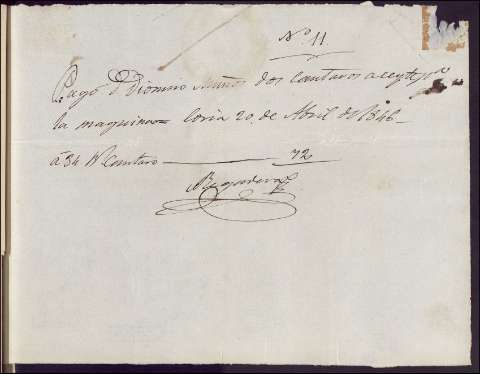 Nº. 11.
Pago D. Dionisio Muños dos Cantaros aceyte pª
la maquina Coria 20, de Abril de 1846
á 34 Rˢ Cantaro 72